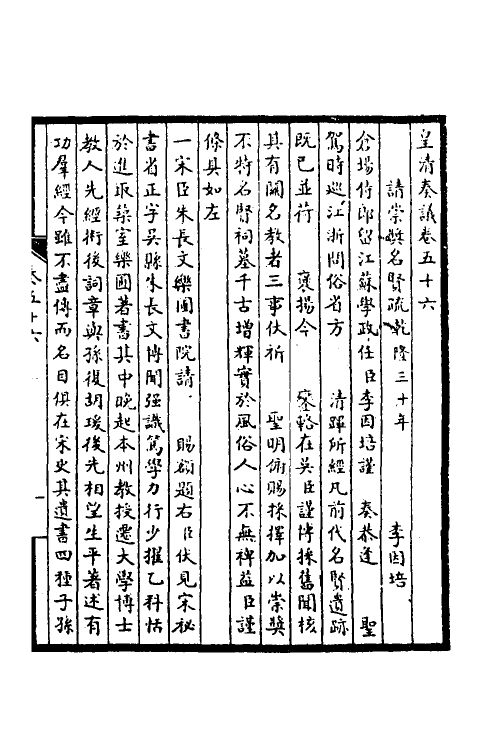 皇清奏議卷五十六
請崇獎名賢疏乾隆三十年 李因培
倉場侍郎留江蘇學政任臣李因培謹 奏恭逢 聖
駕時巡江浙問俗省方 清蹕所經凡前代名賢遺跡
既已並荷 褒揚今 鑾輅在吳臣謹博採舊聞核
具有關名教者三事伏祈 聖明俯賜採擇加以崇獎
不特名賢祠墓千古增輝實於風俗人心不無裨益臣謹
條具如左
一宋臣朱長文樂圃書院請 賜額題右臣伏見宋秘
書省正字吳縣朱長文博聞强識篤學力行少擢乙科恬
於進取築室樂圃著書其中晚起本州教授遷太學博士
教人先經術後詞章與孫復胡瑗後先相望生平著述有
功羣經今雖不盡傳而名目俱在宋史其遺書四種子孫
卷五十六
一